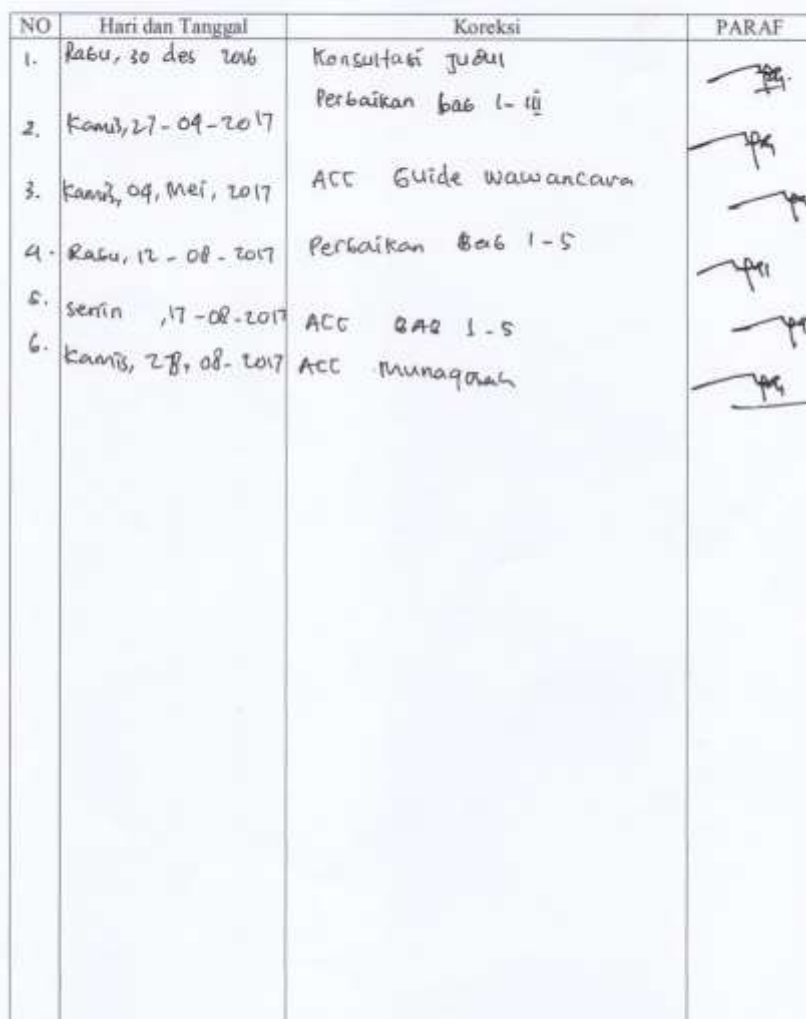 NO Hari dan Tanggal Koreksi PARAF
1. Rabu, 30 des 2016 Konsultasi Judul
Perbaikan bab 1-iii
2. Kamis, 27-04-2017
3. Kamis, 04, Mei, 2017 ACC Guide wawancara
4. Rabu, 12-08-2017 Perbaikan Bab 1-5
5. Senin, 17-08-2017 ACC BAB 1-5
6. Kamis, 28, 08-2017 ACC Munaqosah